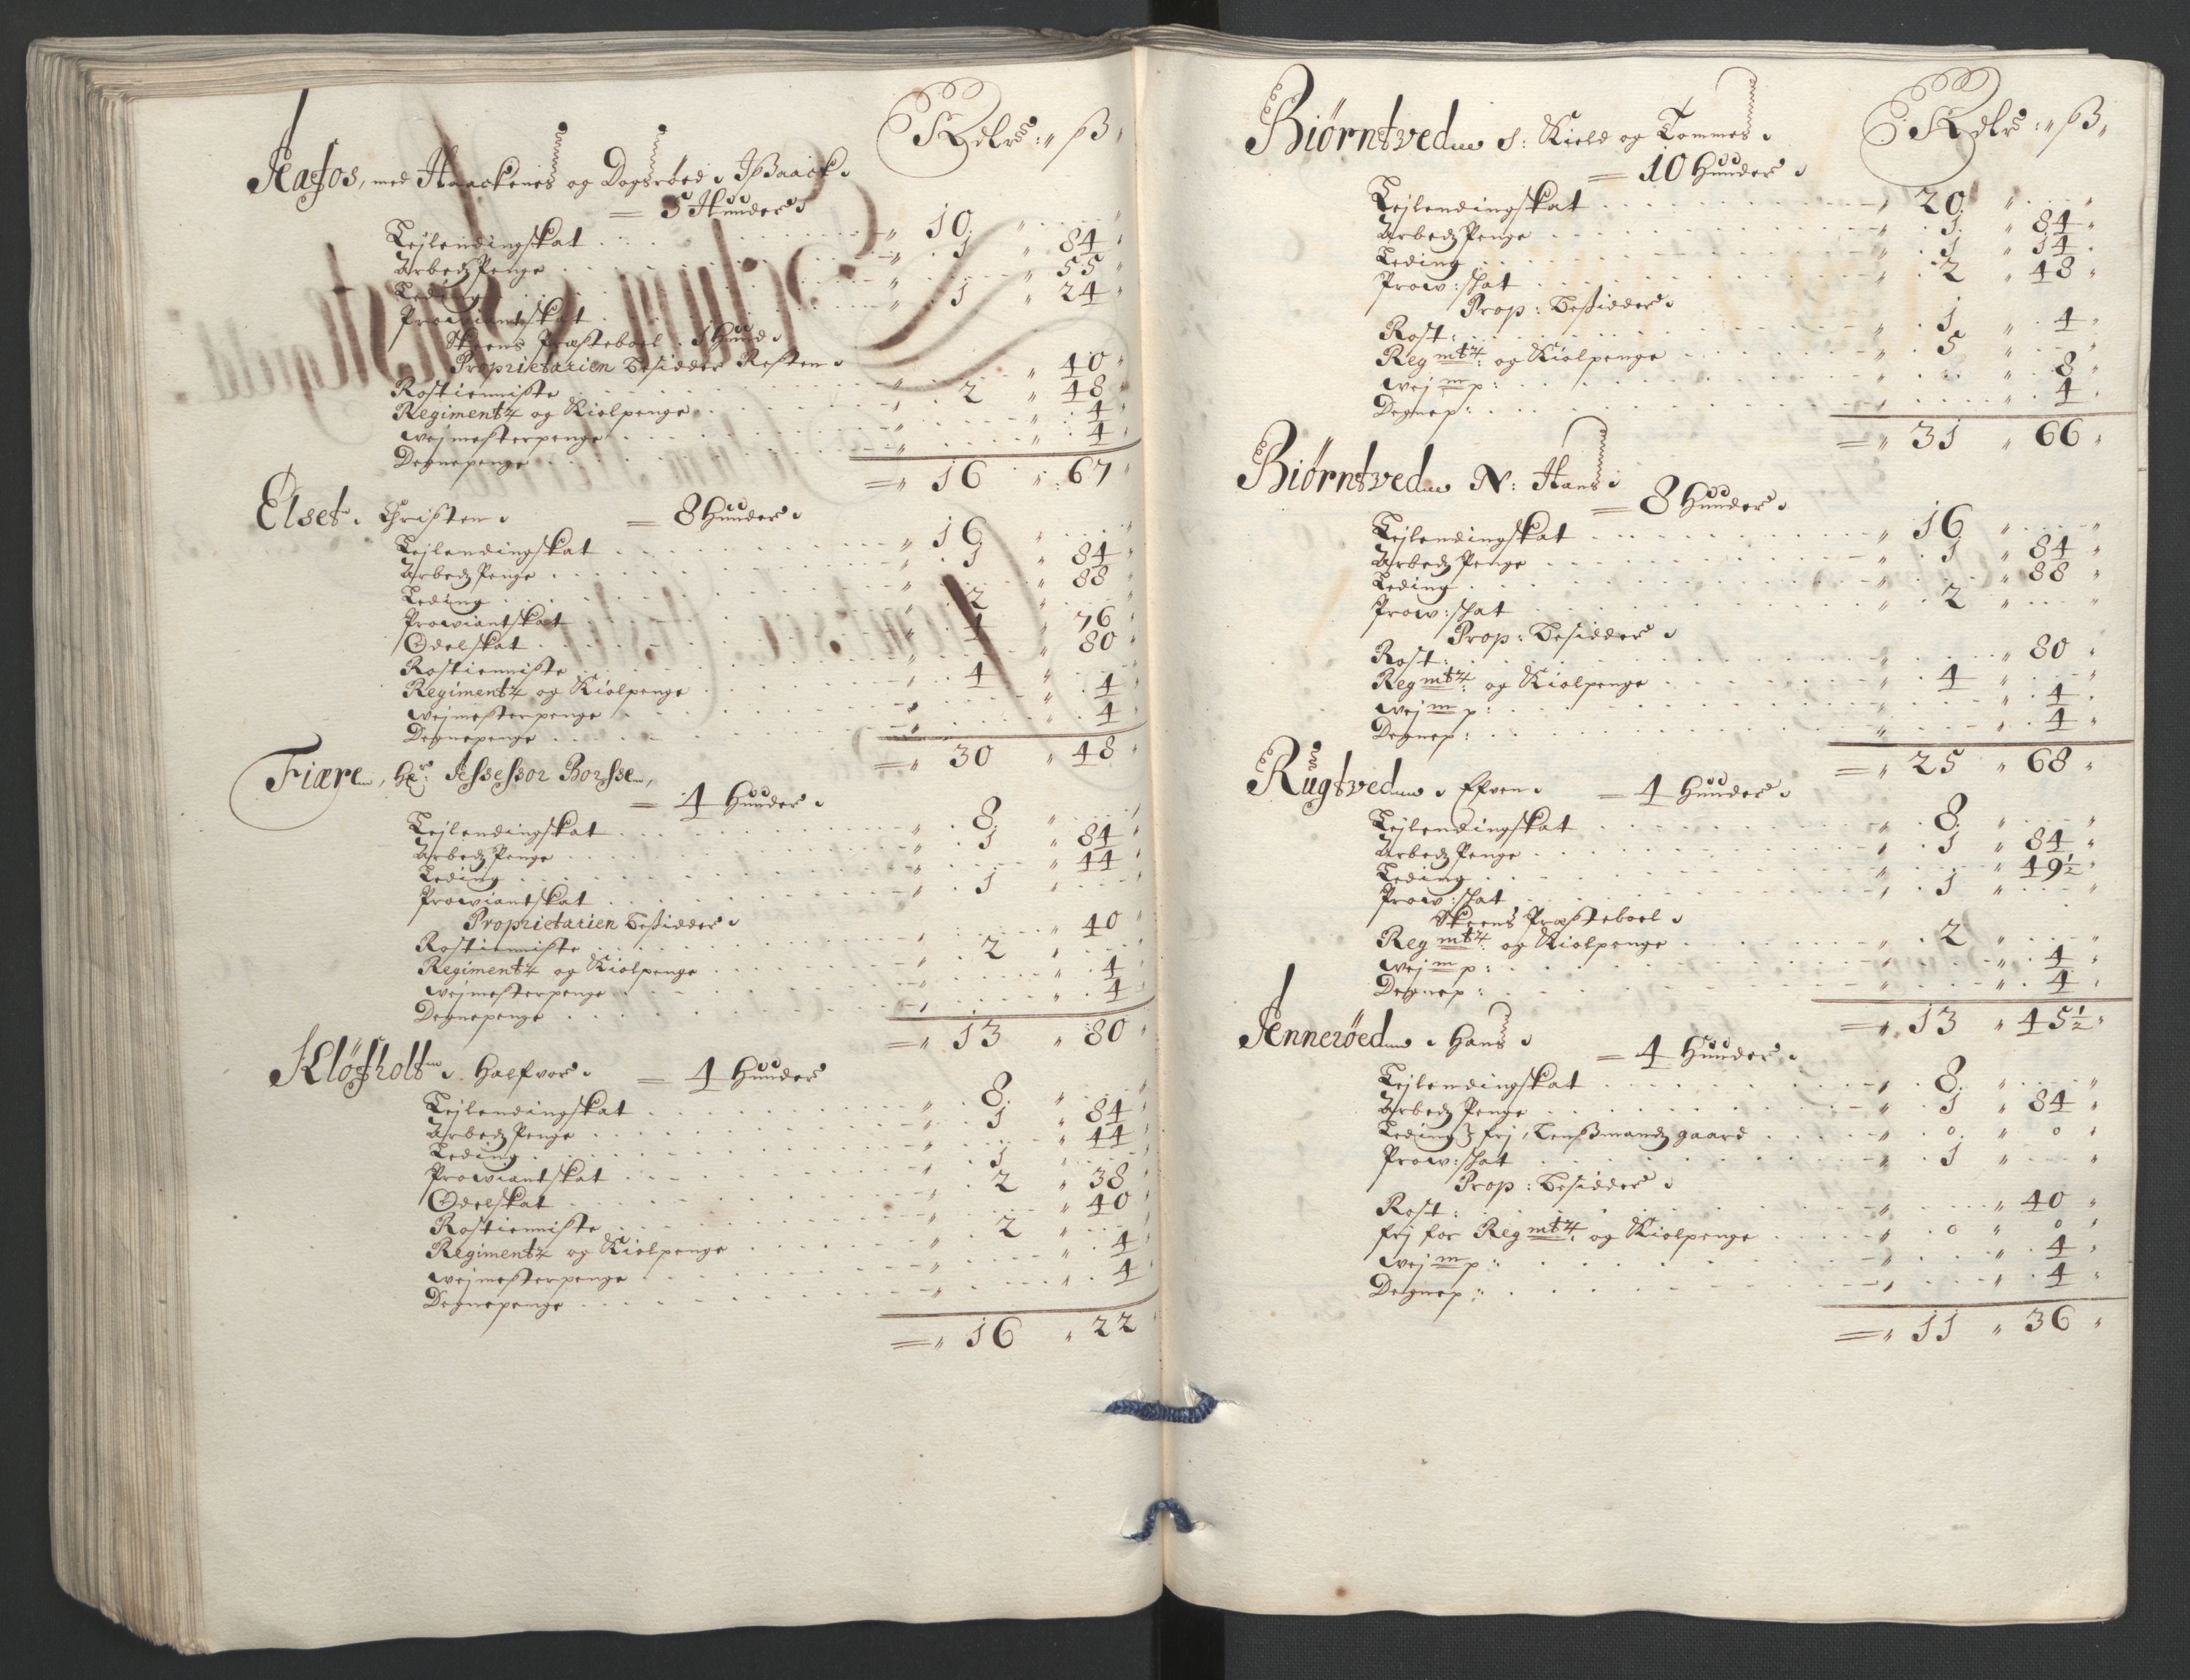 Rdlr: ß
Aafos, med Haackenes og Dagsröed, Ißaack.
= 5 Hunder
Leylendingskat 10
Arbedz Penge 1 84
Leding 55
Prowiantskat 1 24
Skeens Præsteboel 1 Hund
Proprietarien besidder Resten
Rostienniste 40
Regimentz og Kiolpenge 2 48
weymesterpenge 4
Degnepenge 4
= 16 67
Elset. Christen = 8 Hunder
Leylendingskat 16
Arbedz Penge 1 84
Leding 88
Prowiantskat 2
Odelskat 4 76
Rostienniste 80
Regimentz og Kiolpenge 4
weymesterpenge 4
Degnepenge 4
= 30 48
Fiære, Hr: Assessor Borsse,
= 4 Hunder
Leylendingskat 8
Arbedz Penge 1 84
Leding 44
Prowiantskat 1
Proprietarien besidder
Rostienniste 40
Regimentz og Kiolpenge 2
weymesterpenge 4
Degnepenge 4
= 13 80
Klöfholt. Halfvor = 4 Hunder
Leylendingskat 8
Arbedz Penge 1 84
Leding 44
Prowiantskat 1
Odelskat 2 38
Rostienniste 40
Regimentz og Kiolpenge 2
weymesterpenge 4
Degnepenge 4
= 16 22
Rdlr: ß
Biörntved S: Kield og Tommes
= 10 Hunder
Leylendingskat 20
Arbedz Penge 1 84
Leding 1 14
Prow: skat 2 48
Prop: besidder
Rost: 1 4
Regmtz: og Kiolpenge 5
wey m p: 8
Degnep: 4
= 31 66
Biörntved N: Hans
= 8 Hunder
Leylendingskat 16
Arbedz Penge 1 84
Leding 88
Prow: skat 2
Prop: besidder
Rost: 80
Regmtz: og Kiolpenge 4
wey m p: 4
Degnep: 4
= 25 68
Rugtved. Efven = 4 Hunder
Leylendingskat 8
Arbedz Penge 1 84
Leding 49½
Prow: skat 1
Skeens Præsteboel
Regmtz: og Kiolpenge 2
wey m p: 4
Degnep: 4
= 13 45½
Ænneröed. Hans
= 4 Hunder
Leylendingskat 8
Arbedz Penge 1 84
Leding fry, Lenßmandz gaard 0 0
Prow: skat 1
Prop: besidder
Rost: 40
fry for Regmtz: og Kiolpenge 0 0
wey m p: 4
Degnep: 4
= 11 36